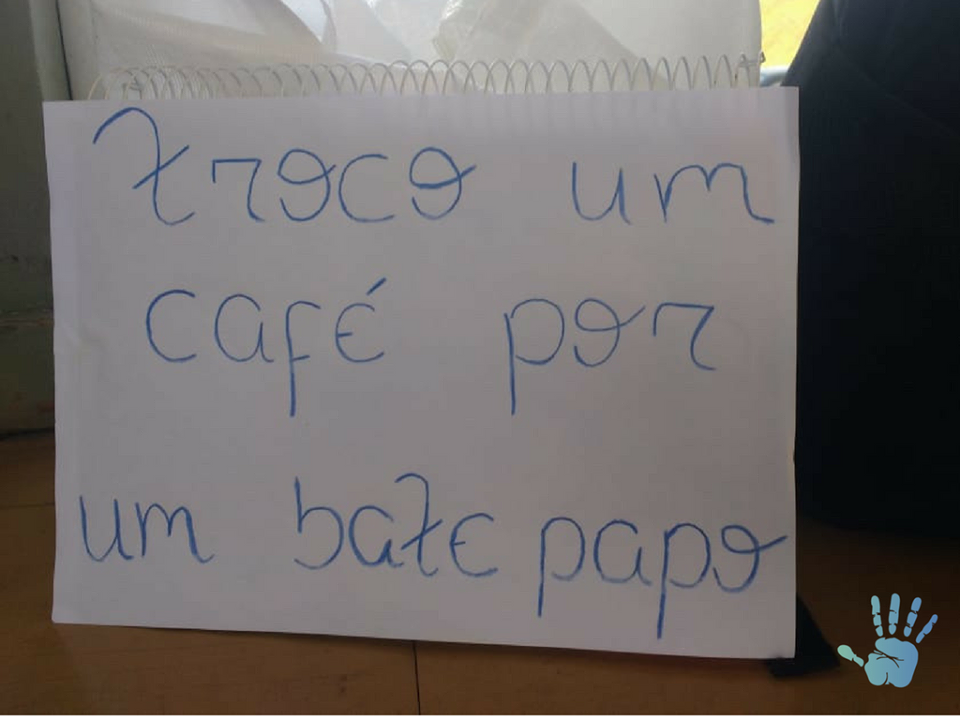 troco um
café por
um bate papo